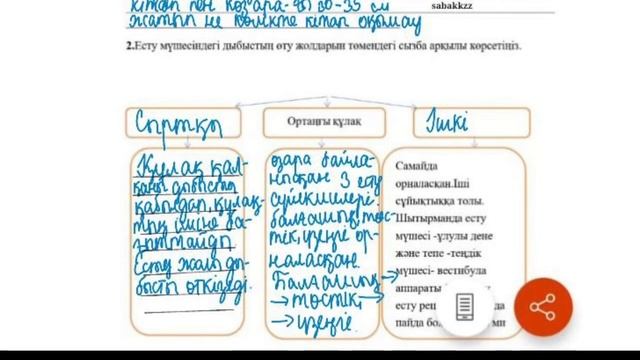 кітап пен көз ара-ғы 30-35 см
sabakkzz
жатып не көлікте кітап оқымау
2.Есту мүшесіндегі дыбыстың өту жолдарын төмендегі сызба арқылы көрсетіңіз.
Сыртқы
Ортаңғы құлақ
Ішкі
Құлақ қал-
қаны дыбысты
қабылдап, құлақ-
тың ішіне ба-
ғыттайды
Есту жолы ды-
бысты өткізеді.
өзара байла-
нысқан 3 есту
сүйекшелері:
балғашық, төс-
тік, үзеңгі ор-
наласқан.
Балғашық→
→төстік→
→үзеңгі.
Самайда
орналасқан.Іші
сұйықтыққа толы.
Шытырманда есту
мүшесі -ұлулы дене
және тепе -теңдік
мүшесі- вестибула
аппараты
есту рец да
пайда бо ми